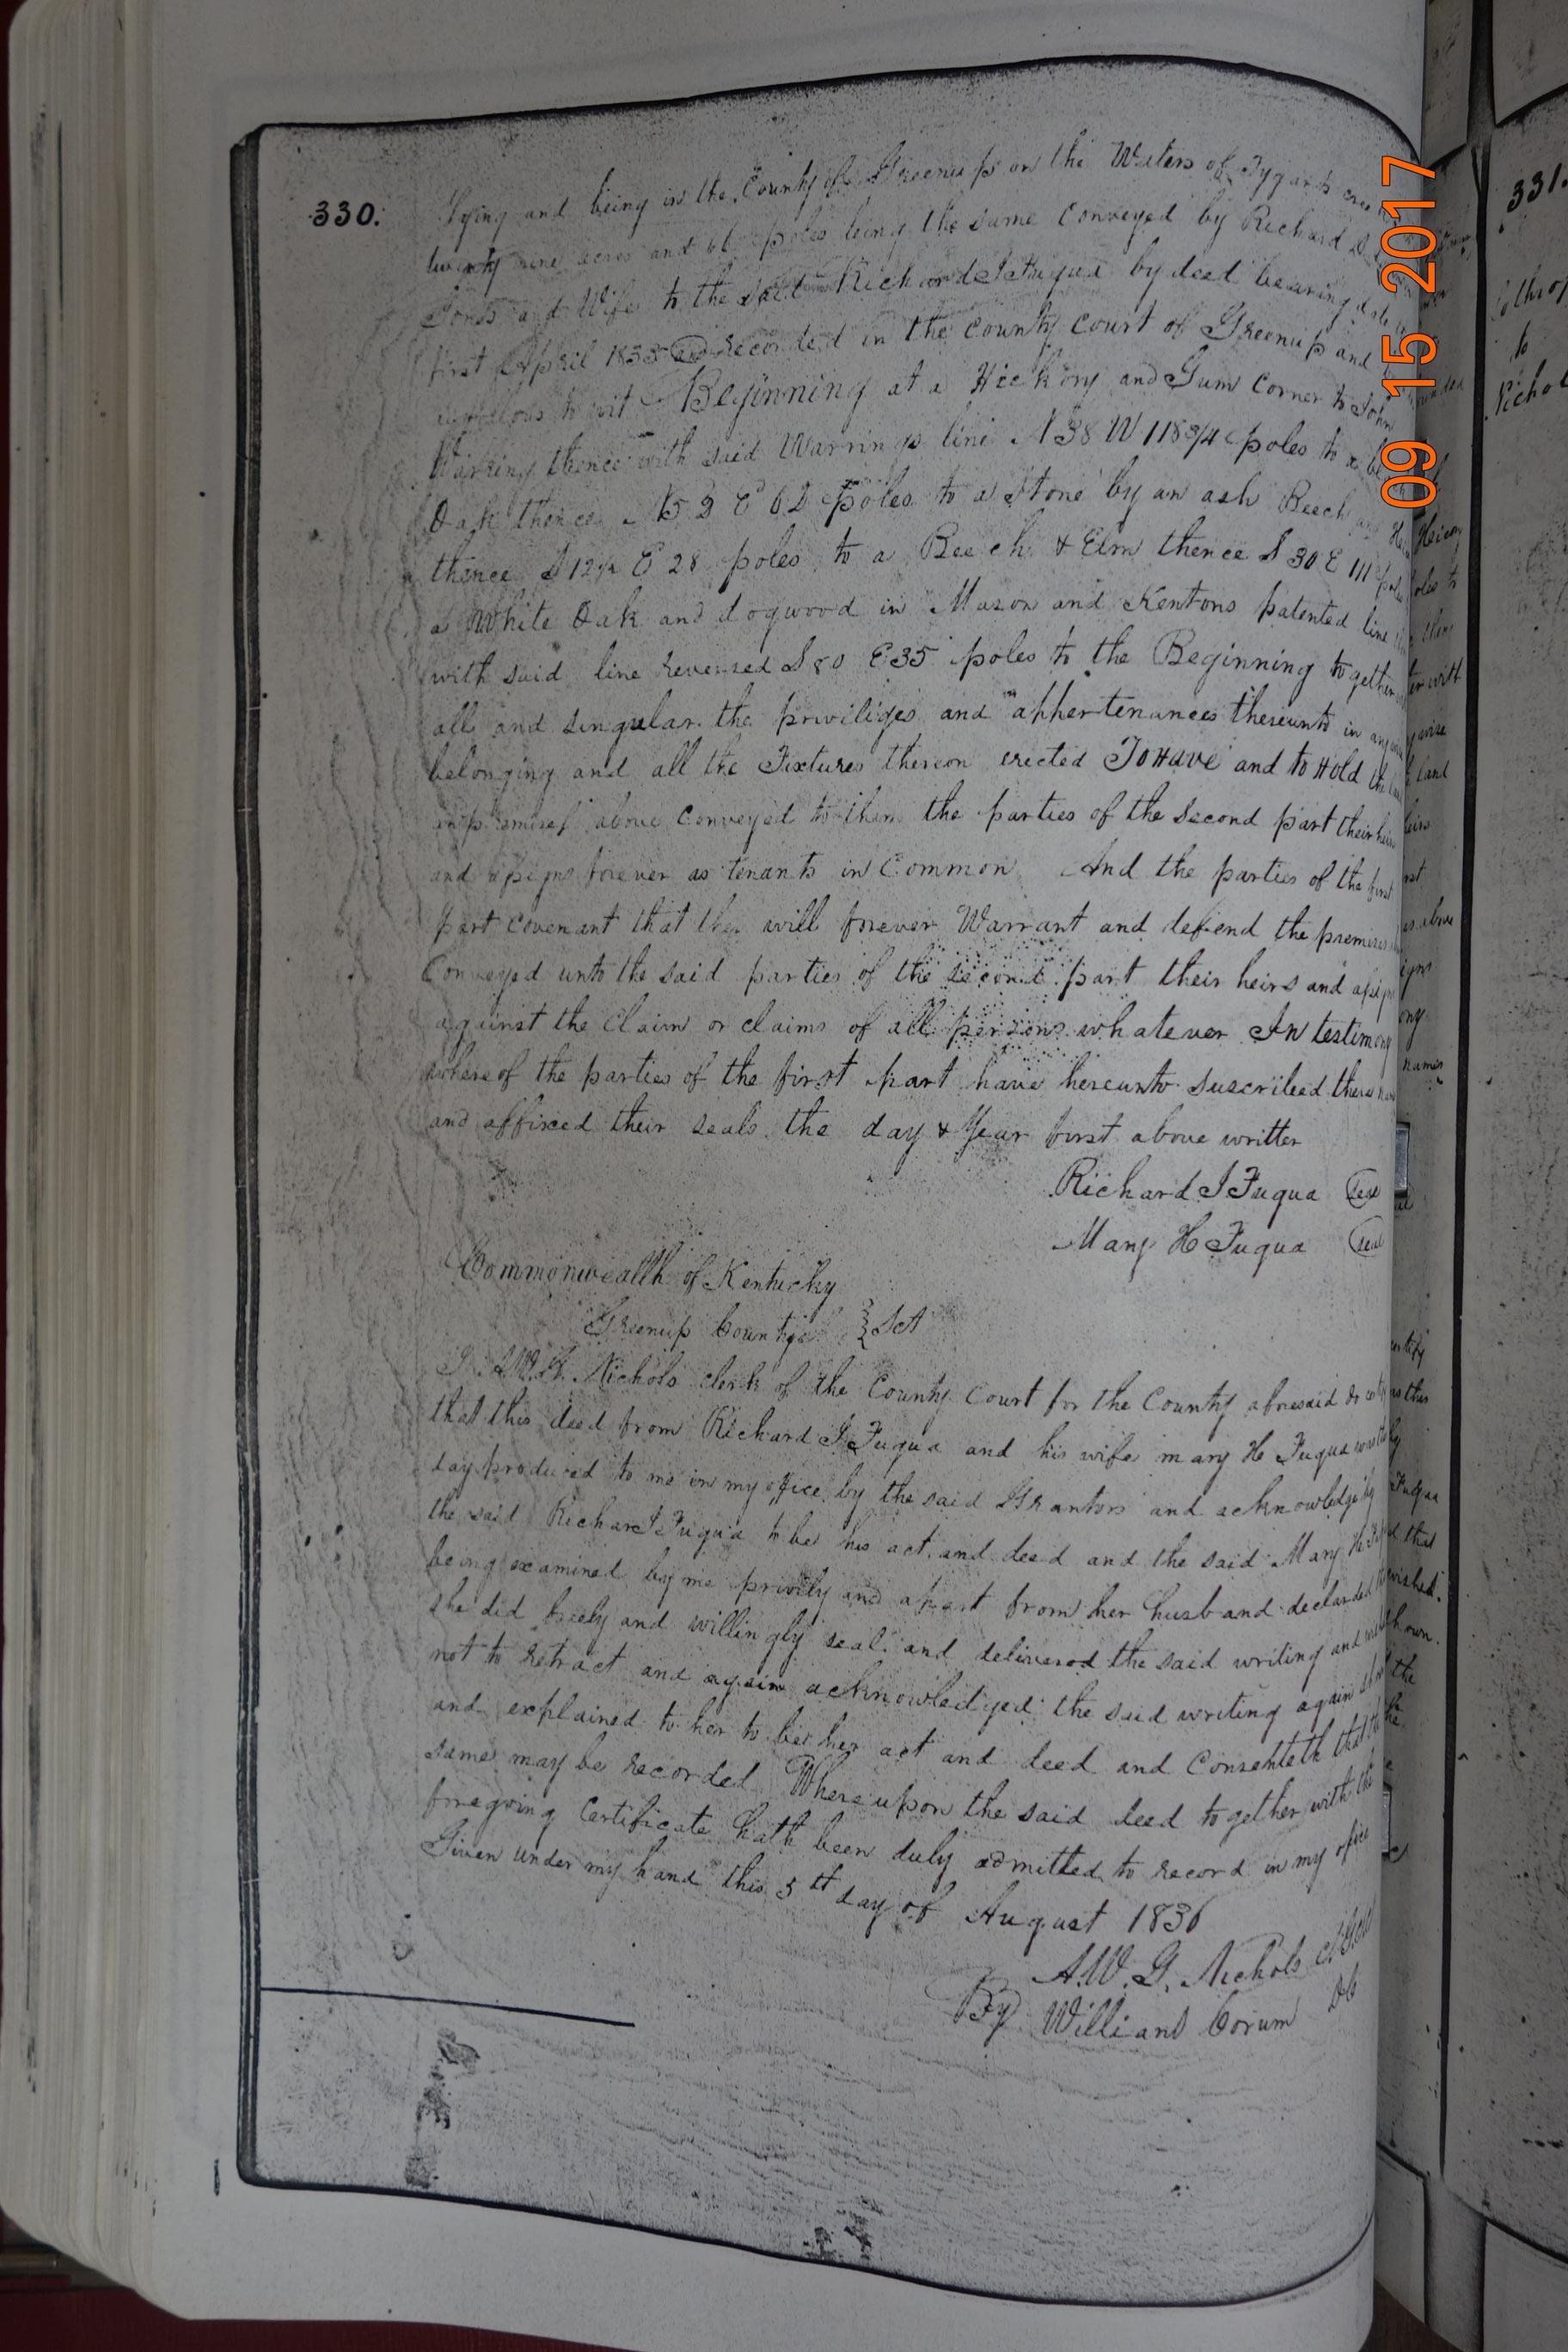 330.
lying and being in the County of Greenup on the Waters of Tygarts
twenty nine acres and 66 poles being the same Conveyed by Richard
Jones and Wife to the said Richard I Fuqua by deed bearing date
first April 1833 and recorded in the County Court of Greenup and
to wit Beginning at a Hickory and Gum Corner to John
Warring thence with said Warrings line N 38 W 118 3/4 poles to a
Oak thence N 52 E 62 poles to a Stone by an ash Beech
thence S 12 1/2 E 28 poles to a Beech & Elm thence S 30 E 111 poles
a White Oak and dogwood in Mason and Kentons patented line
with said line reversed S 80 E 35 poles to the Beginning together
all and singular the priviliges and appertenances thereunto in
belonging and all the Fixtures thereon erected To Have and to Hold the
above Conveyed to them the parties of the second part their heirs
and assigns forever as tenants in Common And the parties of the first
part covenant that they will forever Warrant and defend the premises
Conveyed unto the said parties of the second part their heirs and assigns
against the Claim or claims of all persons whatever In testimony
whereof the parties of the first part have hereunto suscribed
and affixed their seals the day & Year first above written
Richard I Fuqua seal
Mary H Fuqua seal
Commonwealth of Kentucky
Greenup County Sct
I A.W.G. Nichols clerk of the County Court for the County aforesaid do
that this deed from Richard I Fuqua and his wife mary H Fuqua was
day produced to me in my office by the said Grantors and acknowledge by
the said Richard I Fuqua to be his act and deed and the said Mary H
being examined by me privily and apart from her husband declared
she did freely and willingly seal and delivered the said writing and
not to retract and again acknowledged the said writing again
and explained to her to be her act and deed and Consenteth that the
same may be recorded Whereupon the said deed together with the
foregoing Certificate hath been duly admitted to record in my office
Given under my hand this 5th day of August 1836
A.W.G. Nichols
By William Corum DC
331.
09 15 2017